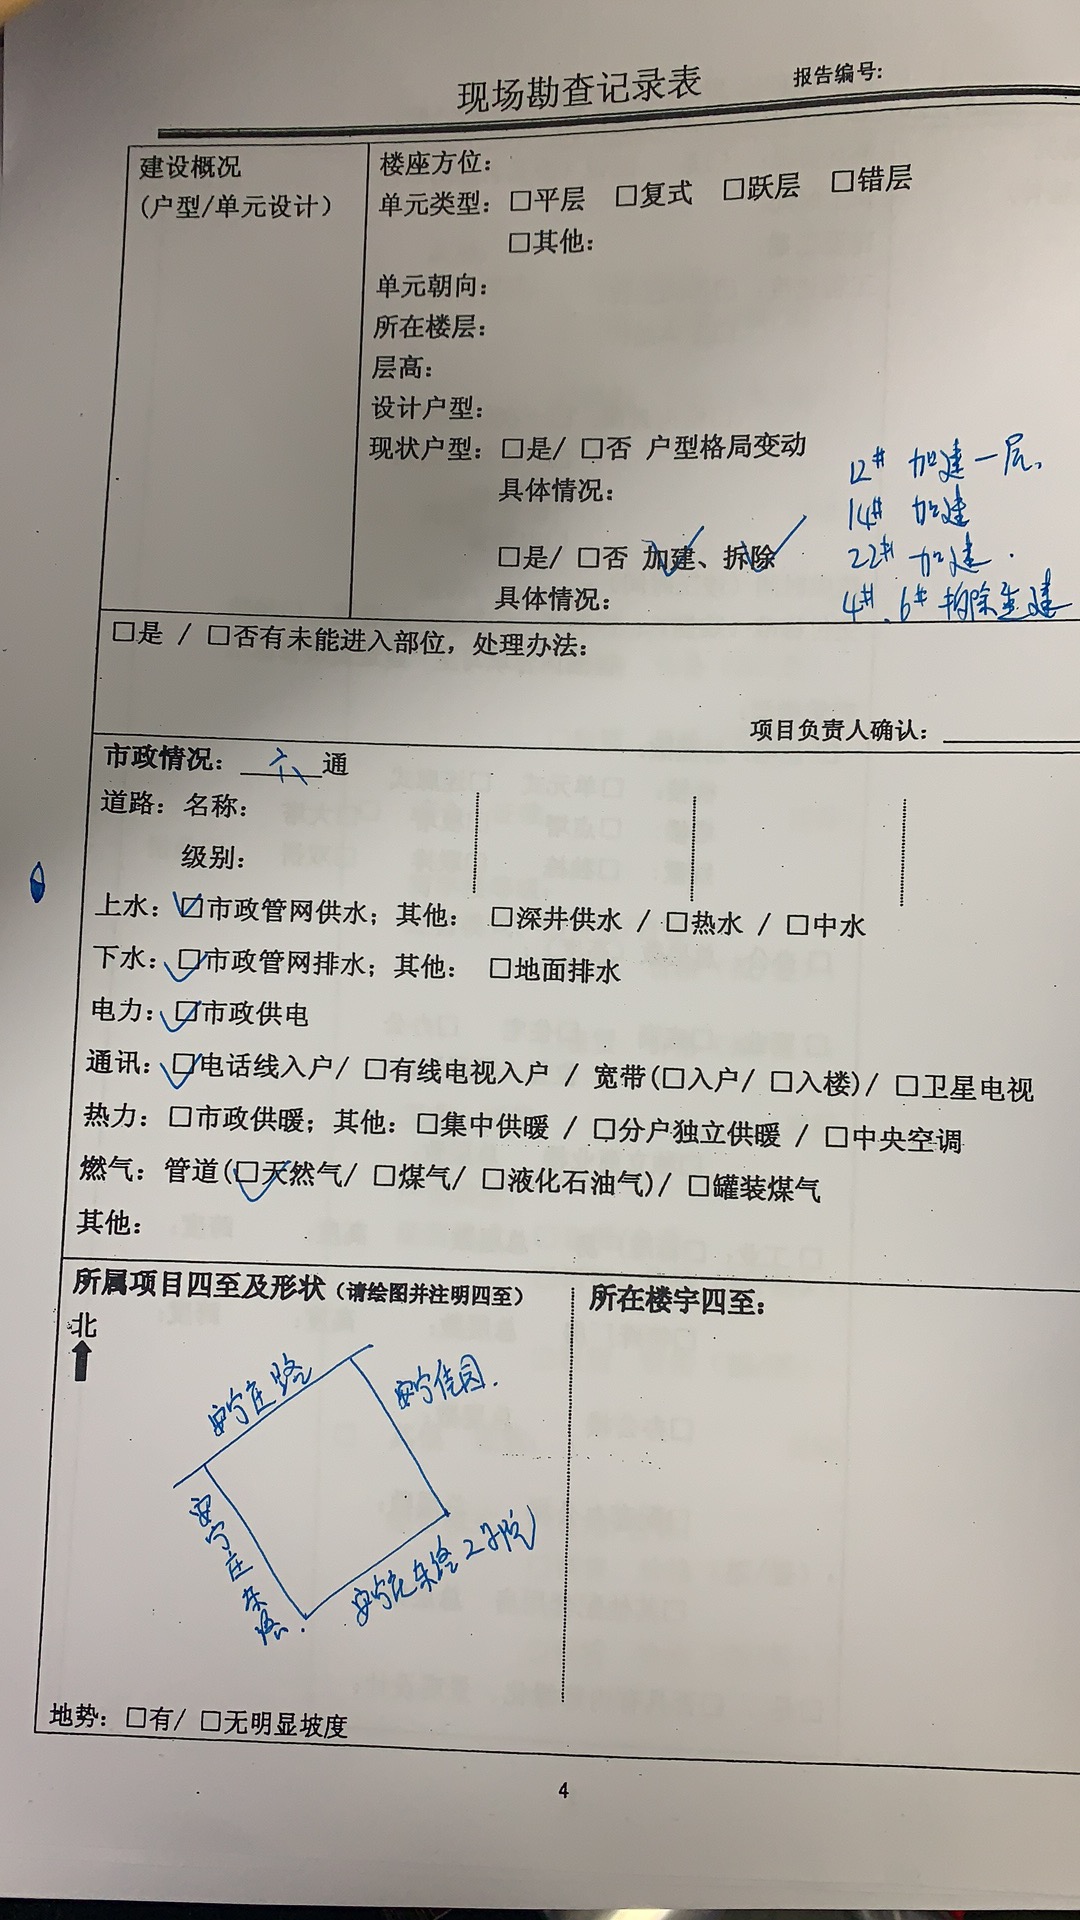 现场勘查记录表 报告编号:
建设概况
(户型/单元设计)
楼座方位:
单元类型: □平层 □复式 □跃层 □错层
□其他:
单元朝向:
所在楼层:
层高:
设计户型:
现状户型: □是/ □否 户型格局变动
具体情况:
□是/ □否 加建、拆除
具体情况:
12# 加建一层.
14# 加建
22# 加建.
4#、6# 拆除重建
□是 / □否有未能进入部位，处理办法:
项目负责人确认:
市政情况: 六通
道路: 名称:
级别:
上水: ☑市政管网供水; 其他: □深井供水 / □热水 / □中水
下水: ☑市政管网排水; 其他: □地面排水
电力: ☑市政供电
通讯: ☑电话线入户/ □有线电视入户 / 宽带(□入户/ □入楼)/ □卫星电视
热力: □市政供暖; 其他: □集中供暖 / □分户独立供暖 / □中央空调
燃气: 管道(☑天然气/ □煤气/ □液化石油气)/ □罐装煤气
其他:
所属项目四至及形状(请绘图并注明四至)
所在楼宇四至:
北
安宁庄路
安宁佳园.
安宁庄东路.
安宁庄东路23号院
地势: □有/ □无明显坡度
4